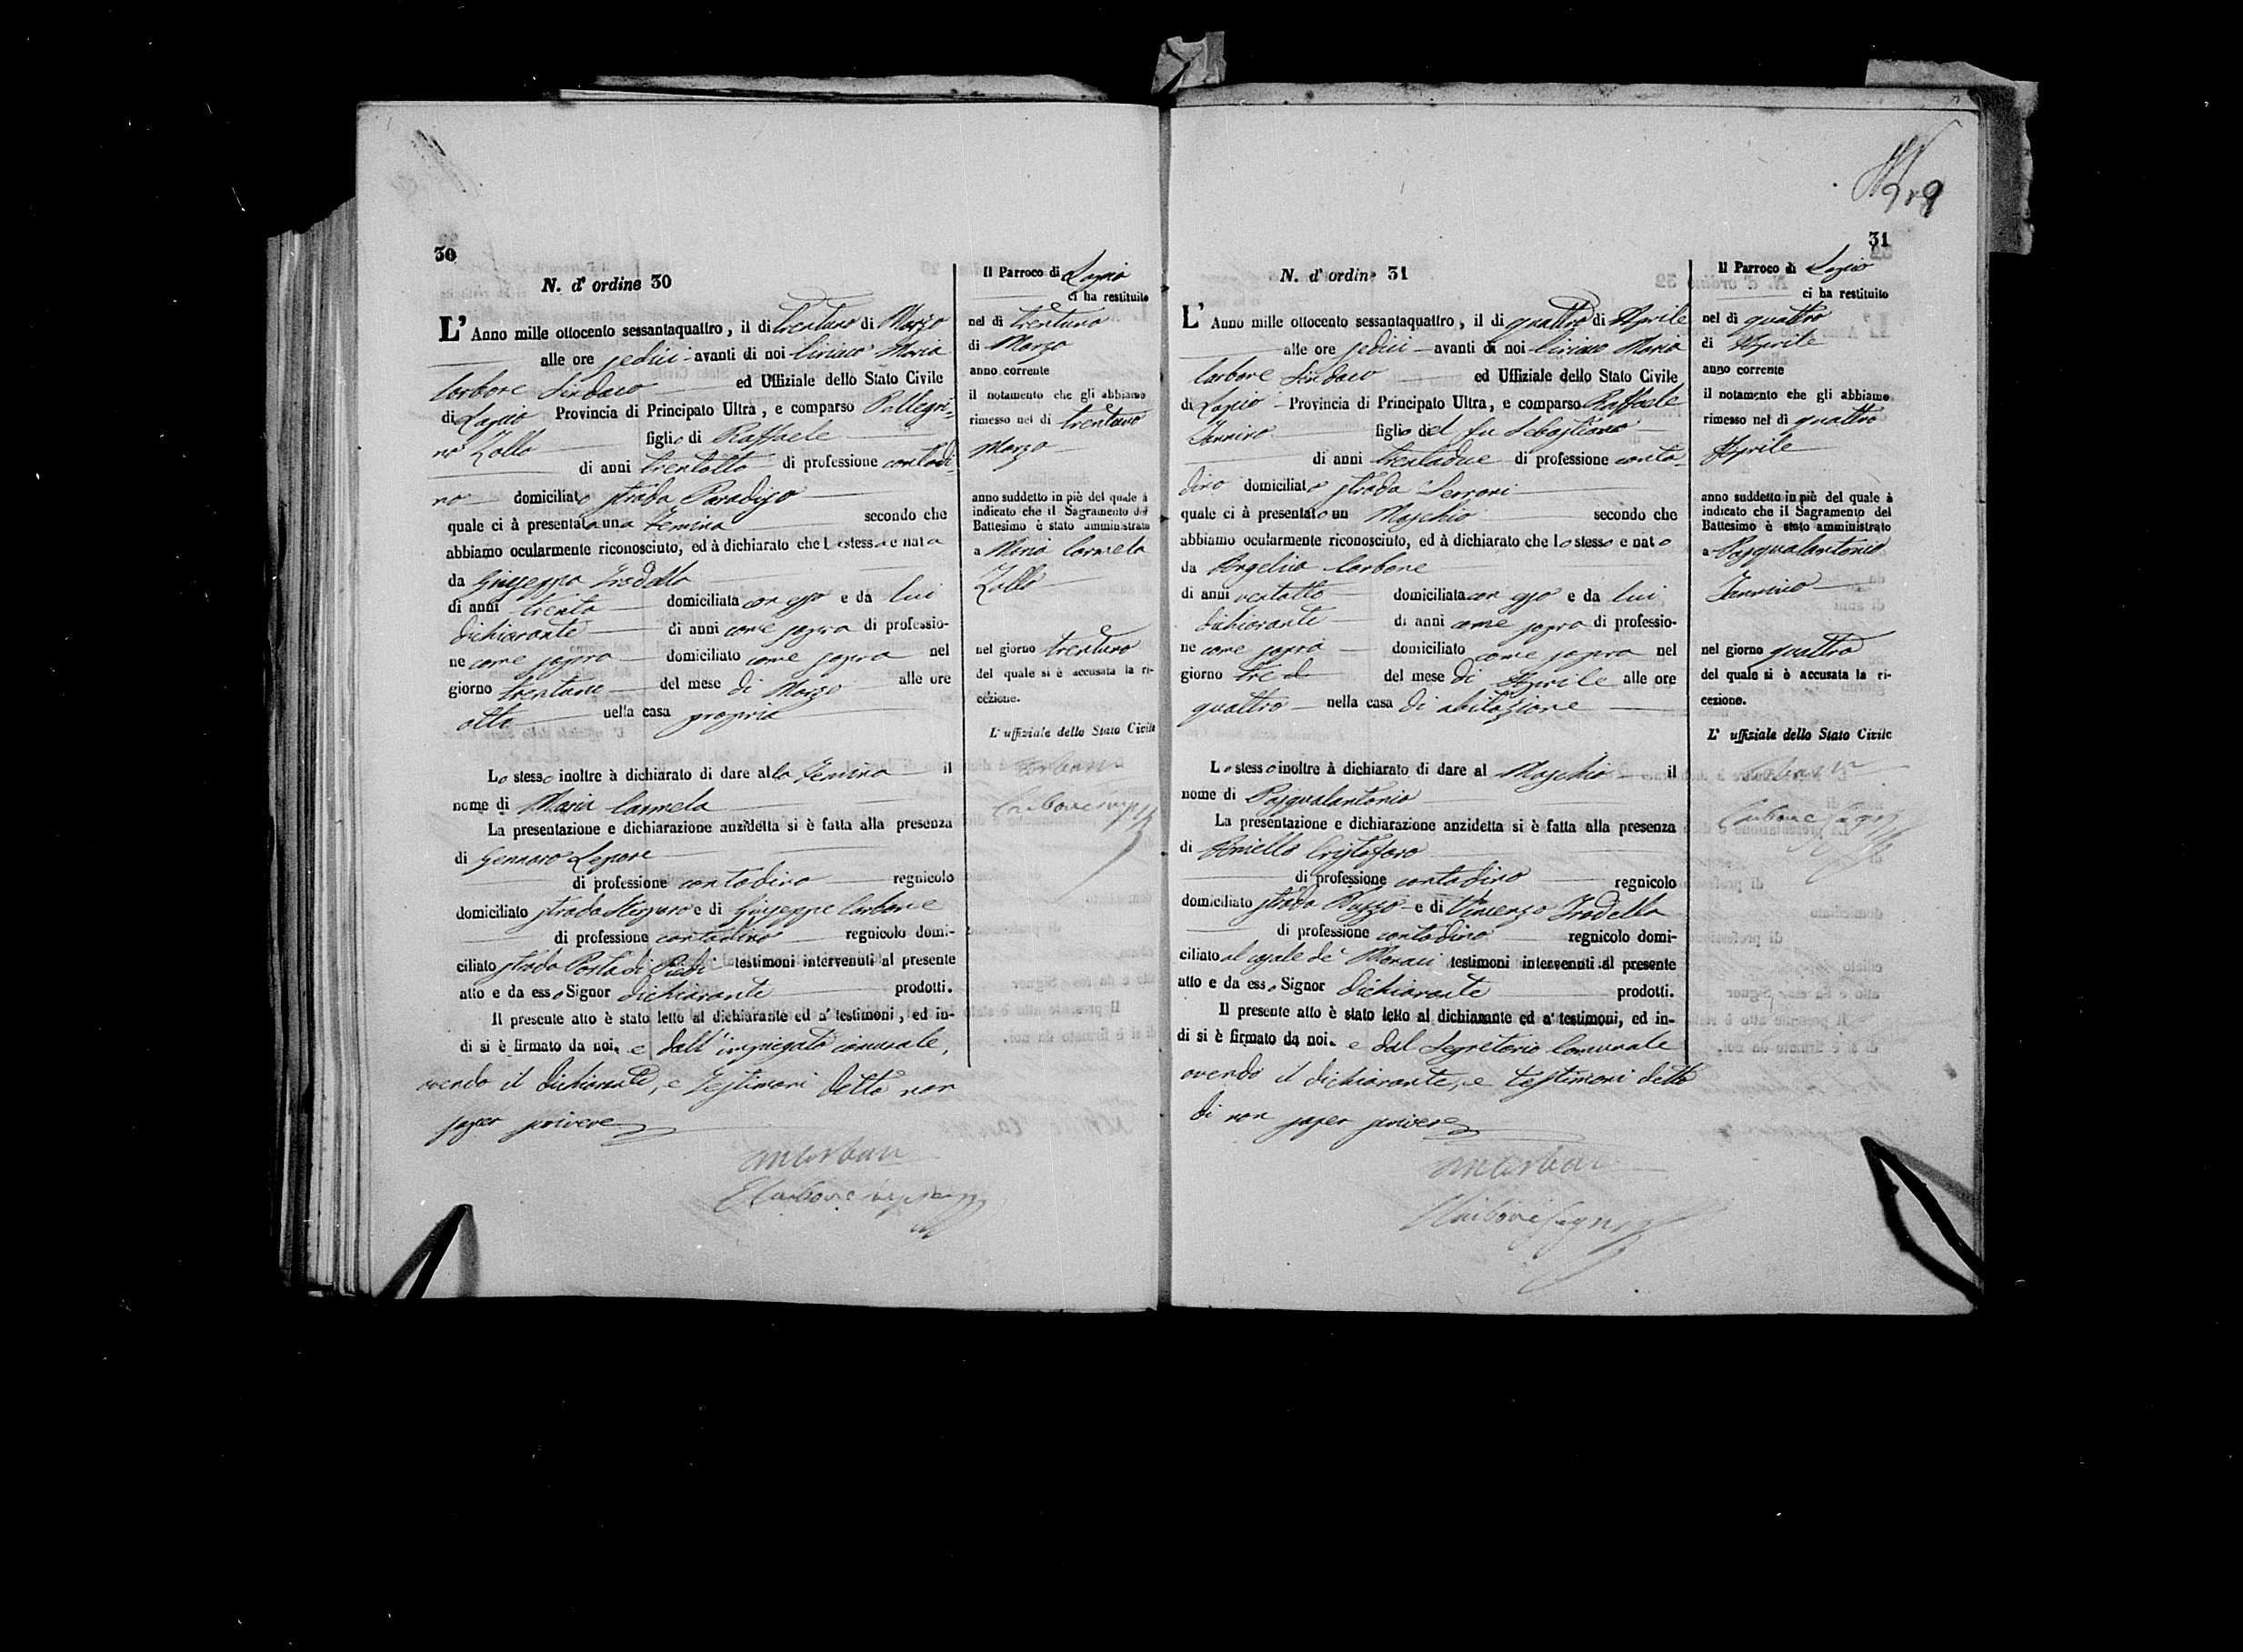 30
N. d' ordine 30
L' Anno mille ottocento sessantaquattro, il dì trentuno di Marzo
alle ore sedici avanti di noi Ciriaco Maria
Carbone Sindaco ed Uffiziale dello Stato Civile
di Lapio Provincia di Principato Ultra, e comparso Pellegri-
no Zollo figlio di Raffaele
di anni trentotto di professione contadi
no domiciliato strada Paradiso
quale ci à presentata una Femina secondo che
abbiamo ocularmente riconosciuto, ed à dichiarato che la stessa e nata
da Giuseppa
di anni trenta domiciliata con esso e da lui
dichiarante di anni come sopra di professio-
ne come sopra domiciliato come sopra nel
giorno trentuno del mese di Marzo alle ore
otto nella casa propria
Lo stesso inoltre à dichiarato di dare alla Femina il
nome di Maria Carmela
La presentazione e dichiarazione anzidetta si è fatta alla presenza
di Gennaro Lepore
di professione contadino regnicolo
domiciliato strada e di Giuseppe Carbone
di professione contadino regnicolo domi-
ciliato strada Porta di Piedi testimoni intervenuti al presente
atto e da esso Signor dichiarante prodotti.
Il presente atto è stato letto al dichiarante ed a' testimoni, ed in-
di si è firmato da noi. e dall' impiegato comunale,
avendo il dichiarante, e Testimoni detto non
saper scrivere
Il Parroco di Lapio
ci ha restituito
nel dì trentuno
di Marzo
anno corrente
il notamento che gli abbiamo
rimesso nel dì trentuno
Marzo
anno suddetto in piè del quale à
indicato che il Sagramento del
Battesimo è stato amministrato
a Maria Carmela
Zollo
nel giorno trentuno
del quale si è accusata la ri-
cezione.
L' uffiziale dello Stato Civile
31
N. d' ordine 31
L' Anno mille ottocento sessantaquattro, il dì quattro di Aprile
alle ore sedici avanti di noi Ciriaco Maria
Carbone Sindaco ed Uffiziale dello Stato Civile
di Lapio Provincia di Principato Ultra, e comparso Raffaele
Iannino figlio del fu Sebastiano
di anni trentadue di professione conta-
dino domiciliato strada Serroni
quale ci à presentato un Maschio secondo che
abbiamo ocularmente riconosciuto, ed à dichiarato che lo stesso e nato
da Angelica Carbone
di anni ventotto domiciliata con esso e da lui
dichiarante di anni come sopra di professio-
ne come sopra domiciliato come sopra nel
giorno tre del mese di Aprile alle ore
quattro nella casa di abitazione
Lo stesso inoltre à dichiarato di dare al Maschio il
nome di Pasqualantonio
La presentazione e dichiarazione anzidetta si è fatta alla presenza
di Aniello Cristofaro
di professione contadino regnicolo
domiciliato strada e di Vincenzo
di professione contadino regnicolo domi-
ciliato al casale de' testimoni intervenuti al presente
atto e da esso Signor dichiarante prodotti.
Il presente atto è stato letto al dichiarante ed a' testimoni, ed in-
di si è firmato da noi. e dal Segretario Comunale
avendo il dichiarante, e testimoni detto
di non saper scrivere
Il Parroco di Lapio
ci ha restituito
nel dì quattro
di Aprile
anno corrente
il notamento che gli abbiamo
rimesso nel dì quattro
Aprile
anno suddetto in piè del quale à
indicato che il Sagramento del
Battesimo è stato amministrato
a Pasqualantonio
Iannino
nel giorno quattro
del quale si è accusata la ri-
cezione.
L' uffiziale dello Stato Civile